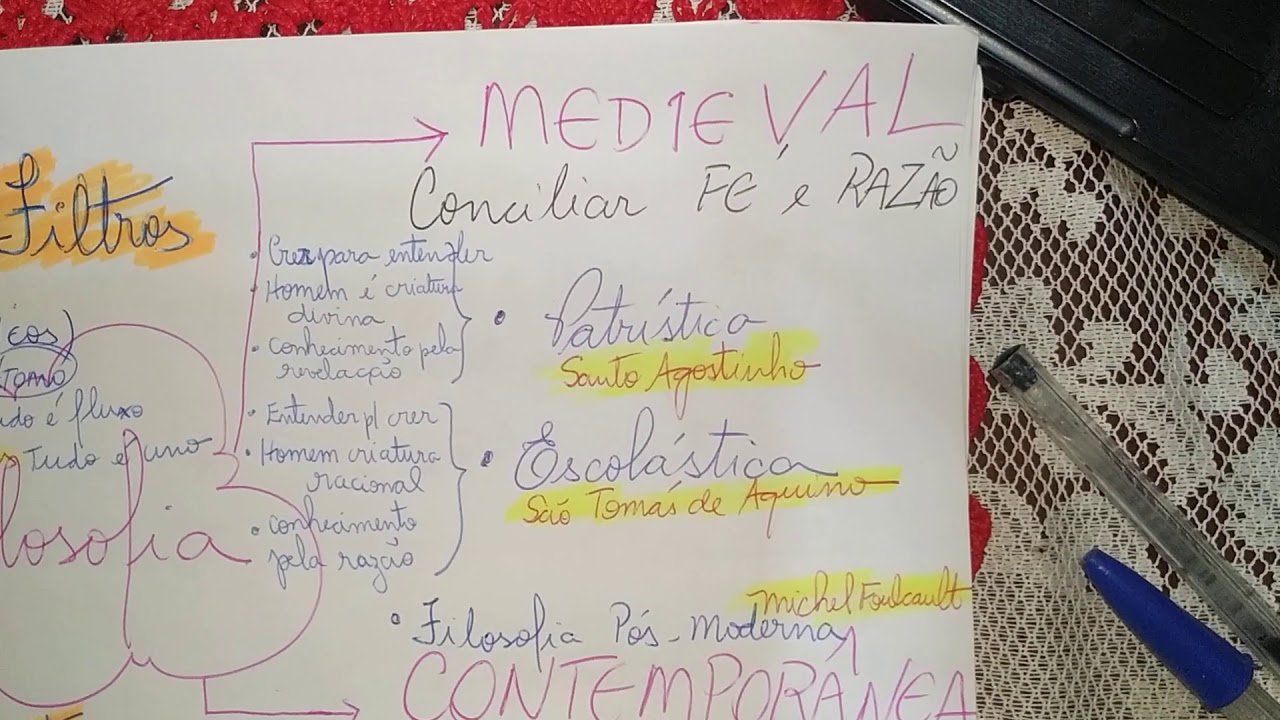 MEDIEVAL
Conciliar FÉ e RAZÃO
Filtros
• Crer para entender
• Homem é criatura
divina
• conhecimento pela
revelação
• Patrística
Santo Agostinho
• Entender p/ crer
• Homem criatura
racional
• conhecimento
pela razão
• Escolástica
São Tomás de Aquino
icos)
udo é fluxo
Tudo é uno
losofia
Michel Foulcault
• Filosofia Pós-Moderna
CONTEMPORÂNEA